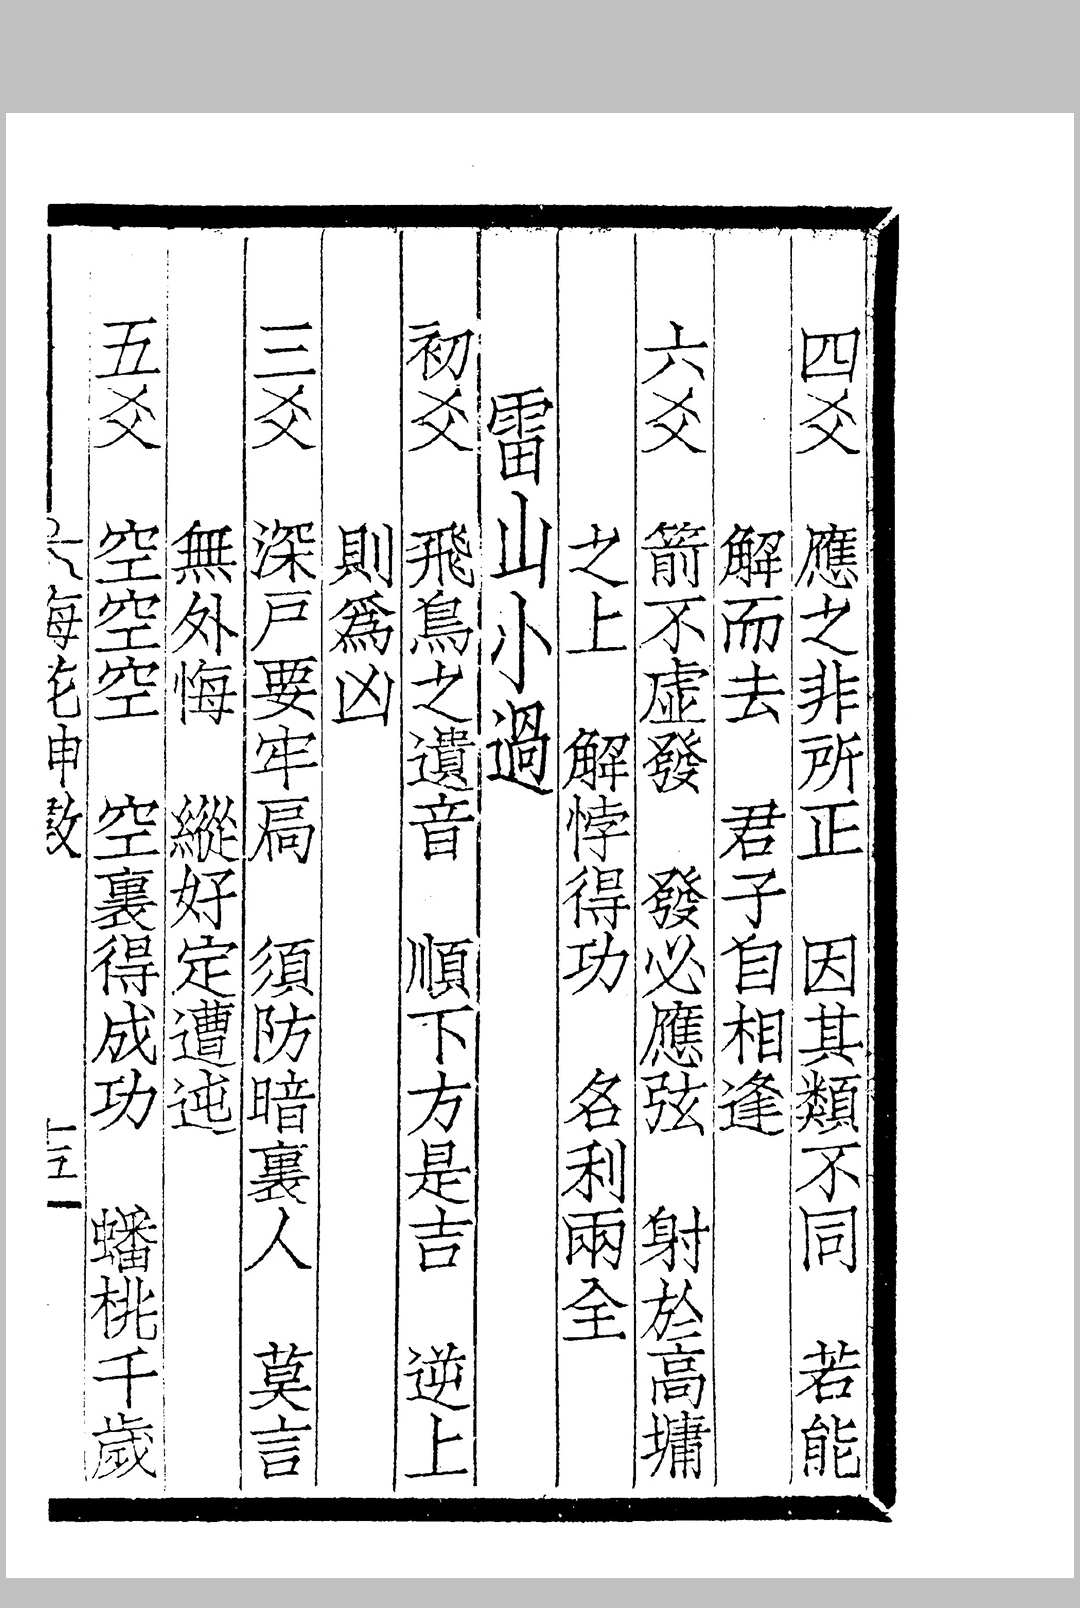 四爻　應之非所正　因其類不同　若能
解而去　君子自相逢
六爻　箭不虛發　發必應弦　射於高墉
之上　解悖得功　名利兩全
雷山小過
初爻　飛鳥之遺音　順下方是吉　逆上
則爲凶
三爻　深戸要牢扃　須防暗裏人　莫言
無外悔　縱好定遭迍
五爻　空空空　空裏得成功　蟠桃千歲